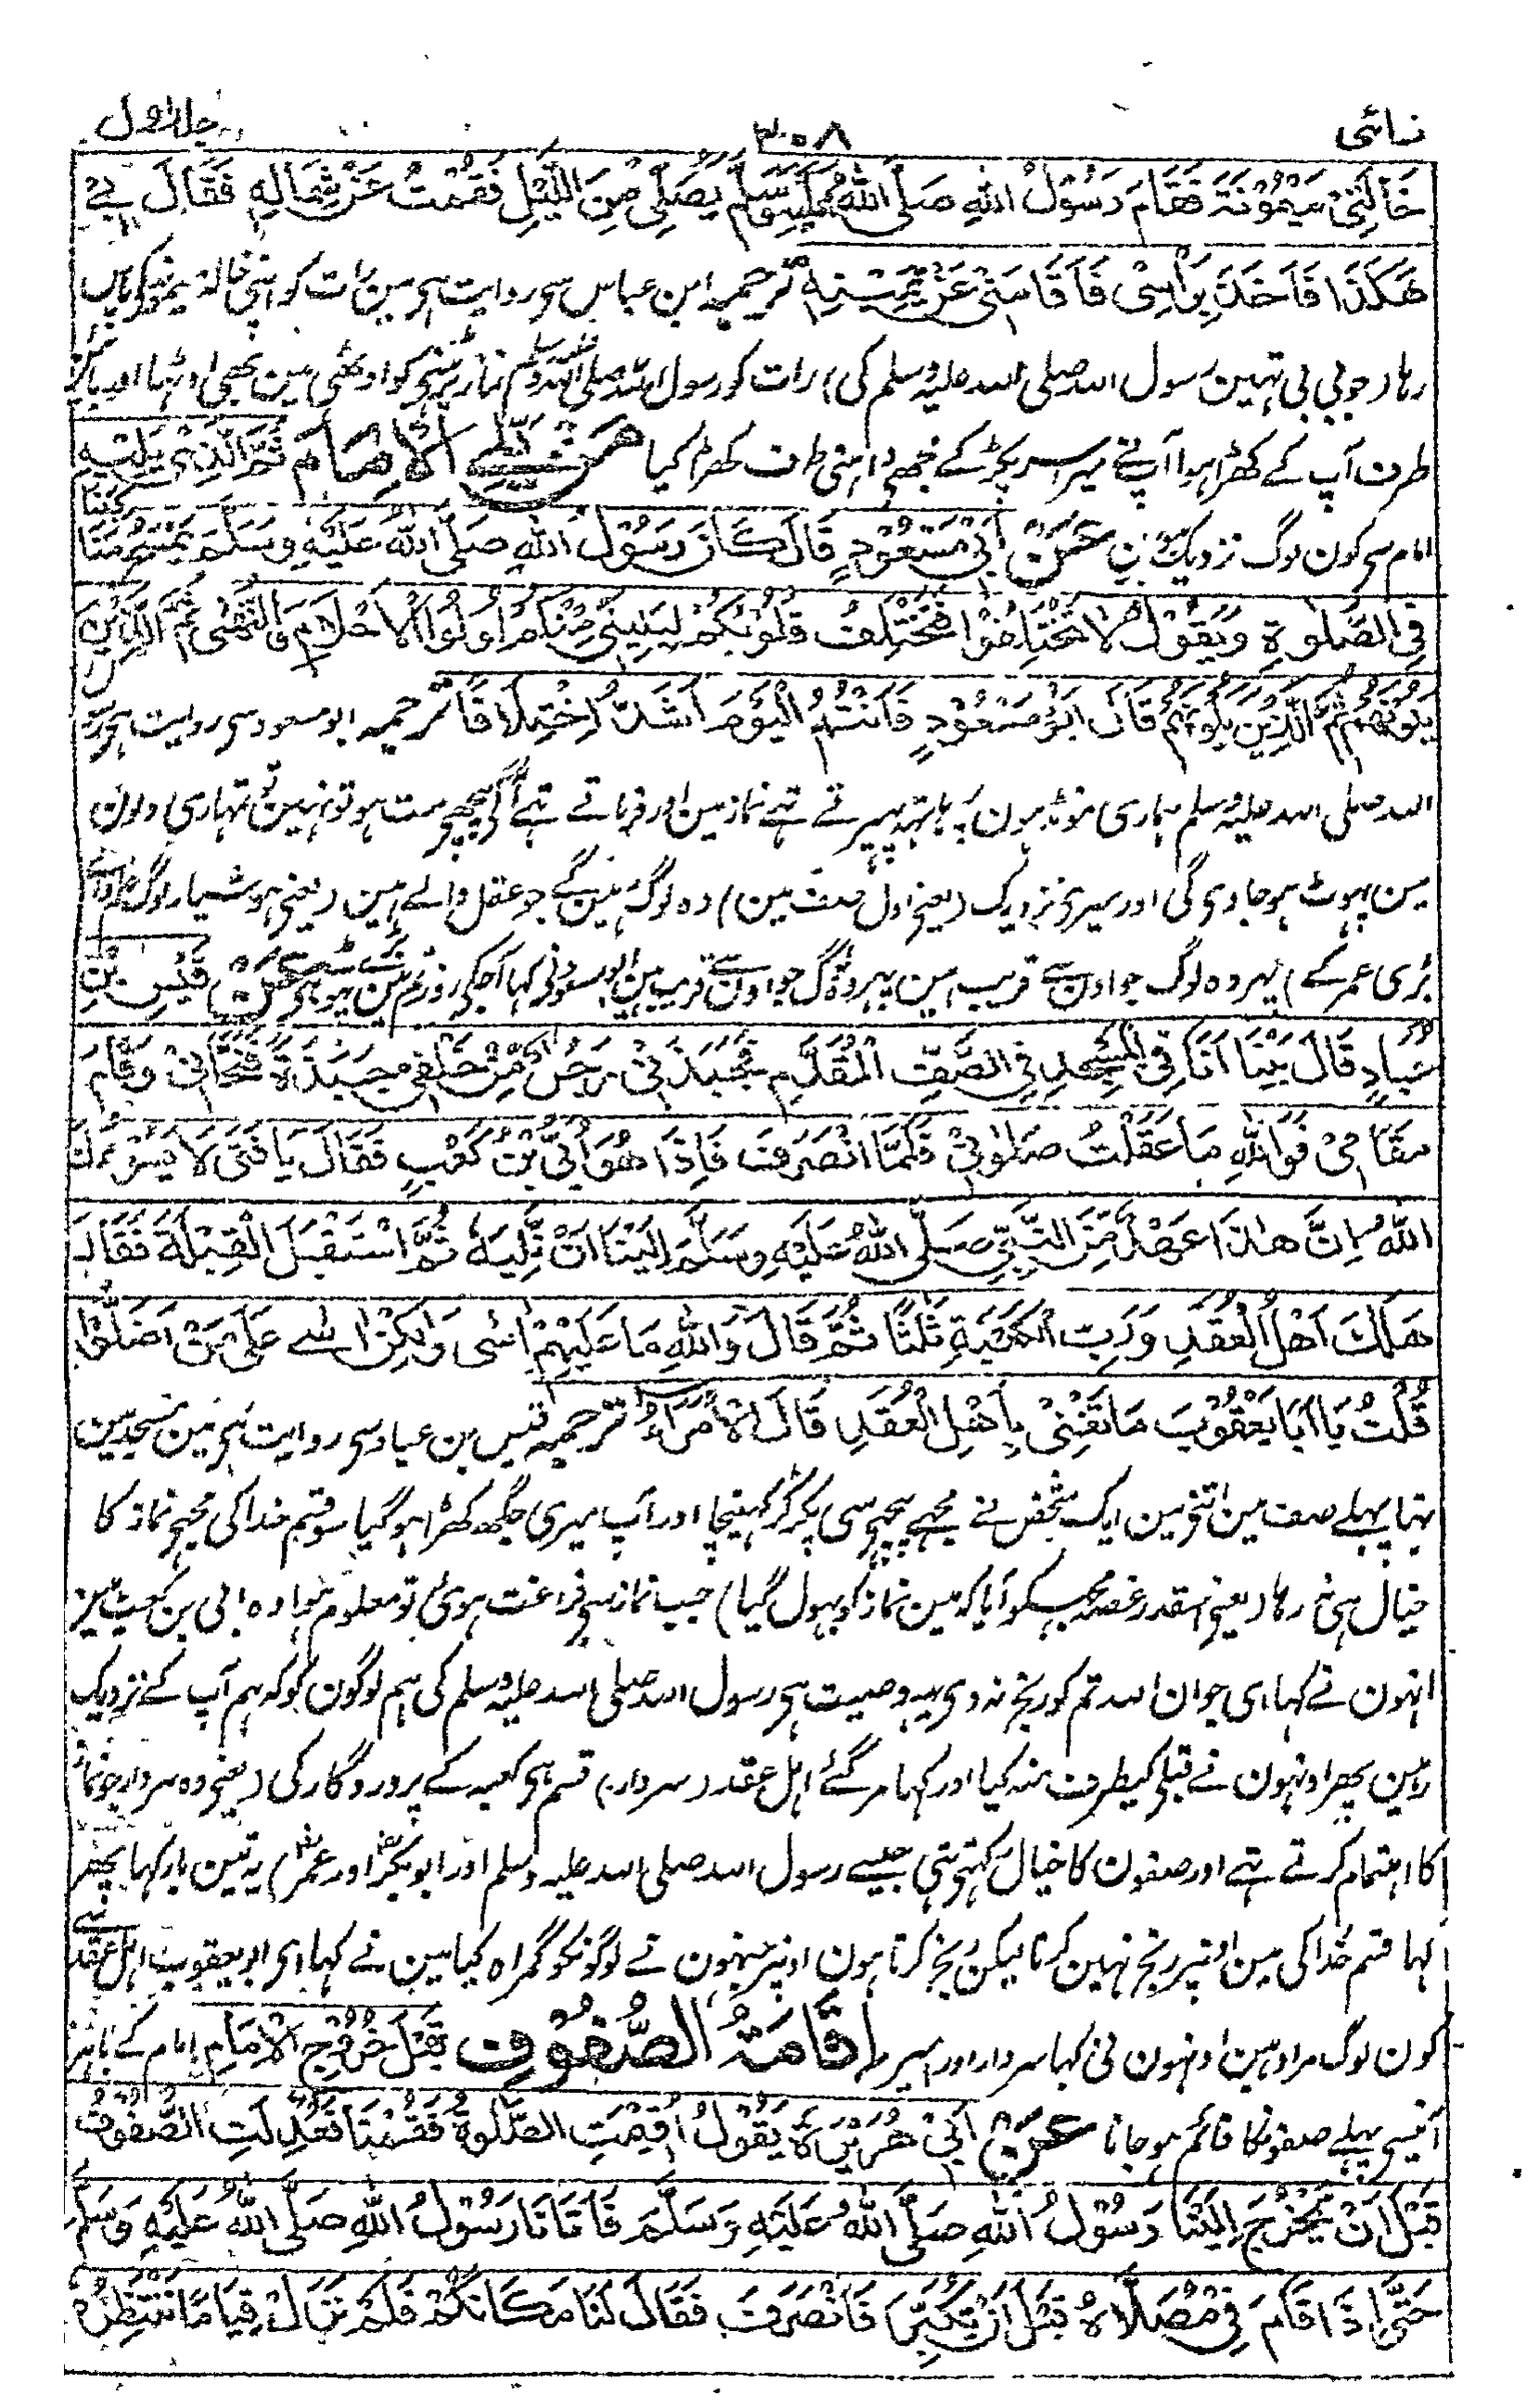 نسائی ۳۰۸ جلد اول
خَالَتِیْ مَیْمُوْنَةَ فَقَامَ رَسُوْلُ اللّٰهِ صَلَّی اللّٰهُ عَلَیْهِ وَسَلَّمَ یُصَلِّیْ مِنَ اللَّیْلِ فَقُمْتُ عَنْ شِمَالِهٖ فَقَالَ بِیْ
هٰكَذَا فَاَخَذَ بِرَاْسِیْ فَاَقَامَنِیْ عَنْ یَّمِیْنِهٖ ترجمہ ابن عباس سے روایت ہے مین رات کو اپنی خالہ میمونہ کے پاس
رہا (جو بی بی تہین رسول اللہ صلی اللہ علیہ وسلم کی) رات کو رسول اللہ صلی اللہ علیہ وسلم نماز پڑہنے کو اوٹھے مین بھی اوٹہا اور بائین
طرف آپ کے کھڑا ہوا آپنے میرا سر پکڑ کے مجھے داہنی طرف کھڑا کیا مَنْ یَّلِی الْاِمَامَ ثُمَّ الَّذِیْ یَلِیْهِ
امام سے کون لوگ نزدیک ہون عَنْ اَبِیْ مَسْعُوْدٍ قَالَ كَانَ رَسُوْلُ اللّٰهِ صَلَّی اللّٰهُ عَلَیْهِ وَسَلَّمَ یَمْسَحُ مَنَاكِبَنَا
فِی الصَّلٰوةِ وَیَقُوْلُ لَا تَخْتَلِفُوْا فَتَخْتَلِفَ قُلُوْبُكُمْ لِیَلِیَنِّیْ مِنْكُمْ اُولُوا الْاَحْلَامِ وَالنُّهٰی ثُمَّ الَّذِیْنَ
یَلُوْنَهُمْ ثُمَّ الَّذِیْنَ یَلُوْنَهُمْ قَالَ اَبُوْ مَسْعُوْدٍ فَاَنْتُمُ الْیَوْمَ اَشَدُّ اخْتِلَافًا ترجمہ ابو مسعود سے روایت ہے رسول
اللہ صلی اللہ علیہ وسلم ہماری مونڈہون پر ہاتہہ پہیرتے تہے نماز مین اور فرماتے تہے آگے پیچھے مت ہو تو نہین تہاری دلون
مین پہوٹ ہو جاوی گی اور میری نزدیک (یعنے اول صف مین) وہ لوگ رہین گے جو عقل والے ہین (یعنے ہوشیار لوگ
بڑی عمر کے) پہر وہ لوگ جو اون سے قریب ہین پہر وہ لوگ جو اون سے قریب ہین ابو مسعود نے کہا آجکی روز تم مین عَنْ قَیْسِ بْنِ
عُبَادٍ قَالَ بَیْنَا اَنَا فِی الْمَسْجِدِ فِی الصَّفِّ الْمُقَدَّمِ فَجَبَذَنِیْ رَجُلٌ مِّنْ خَلْفِیْ جَبْذَةً فَنَحَّانِیْ وَقَامَ
مَقَامِیْ فَوَاللّٰهِ مَا عَقَلْتُ صَلٰوتِیْ فَلَمَّا انْصَرَفَ فَاِذَا هُوَ اُبَیُّ بْنُ كَعْبٍ فَقَالَ یَا فَتٰی لَا یَسُؤْكَ
اللّٰهُ اِنَّ هٰذَا عَهْدٌ مِّنَ النَّبِیِّ صَلَّی اللّٰهُ عَلَیْهِ وَسَلَّمَ اِلَیْنَا اَنْ نَّلِیَهٗ ثُمَّ اسْتَقْبَلَ الْقِبْلَةَ فَقَالَ
هَلَكَ اَهْلُ الْعُقَدِ وَرَبِّ الْكَعْبَةِ ثَلٰثًا ثُمَّ قَالَ وَاللّٰهِ مَا عَلَیْهِمْ اٰسٰی وَلٰكِنْ اٰسٰی عَلٰی مَنْ اَضَلُّوْا
قُلْتُ یَا اَبَا یَعْقُوْبَ مَا تَعْنِیْ بِاَهْلِ الْعُقَدِ قَالَ الْاُمَرَاءُ ترجمہ قیس بن عباد سے روایت ہے مین مسجد مین
تہا پہلے صف مین اتنے مین ایک شخص نے مجہے پیچہے سی پکڑ کر کہینچا اور آپ میری جگھ کھڑا ہو گیا سو قسم خدا کی مجہے نماز کا
خیال ہی نہ رہا (یعنے اسقدر غصہ مجہکو آیا کہ مین نماز کو بہول گیا) جب نماز سے فراغت ہوئی تو معلوم ہوا وہ ابی بن کعب ہین
انہون نے کہا ای جوان اللہ تم کو رنج نہ دی یہ وصیت ہے رسول اللہ صلی اللہ علیہ وسلم کی ہم لوگون کو کہ ہم آپ کے نزدیک
رہین پھر اونہون نے قبلے کیطرف منہ کیا اور کہا مر گئے اہل عقد (سردار) قسم ہے کعبہ کے پروردگار کی (یعنے وہ سردار جو نماز
کا اہتمام کرتے تہے اور صفون کا خیال رکہتے تہی جیسے رسول اللہ صلی اللہ علیہ وسلم اور ابوبکرؓ اور عمرؓ) یہ تین بار کہا پھر
کہا قسم خدا کی مین اونپر رنج نہین کرتا لیکن رنج کرتا ہون اونپر جنہون نے لوگونکو گمراہ کیا مین نے کہا ای ابو یعقوب اہل عقد سے
کون لوگ مراد ہین اونہون نی کہا سردار اور امیر اِقَامَةُ الصُّفُوْفِ قَبْلَ خُرُوْجِ الْاِمَامِ امام کے باہر
آنیسے پہلے صفونکا قائم ہو جانا عَنْ اَبِیْ هُرَیْرَةَ یَقُوْلُ اُقِیْمَتِ الصَّلٰوةُ فَقُمْنَا فَعُدِّلَتِ الصُّفُوْفُ
قَبْلَ اَنْ یَّخْرُجَ اِلَیْنَا رَسُوْلُ اللّٰهِ صَلَّی اللّٰهُ عَلَیْهِ وَسَلَّمَ فَاَتَانَا رَسُوْلُ اللّٰهِ صَلَّی اللّٰهُ عَلَیْهِ وَسَلَّمَ
حَتّٰی اِذَا قَامَ فِیْ مُصَلَّاهُ قَبْلَ اَنْ یُّكَبِّرَ فَانْصَرَفَ فَقَالَ لَنَا مَكَانَكُمْ فَلَمْ نَزَلْ قِیَامًا نَنْتَظِرُهٗ